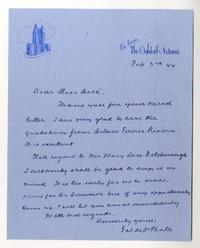 The Waldorf-Astoria
Feb 3rd 44
Dear Miss Arcé:
Thank you for your kind
letter. I am very glad to have the
quotation from Arturo Torres Rioseco.
It is excellent.
With regard to Miss Mary Lane
I certainly shall be glad to keep it in
mind. It is too early for us to make
plans for the Summer but if any opportunity
turns up I will let you know immediately
With kind regards,
Sincerely yours,